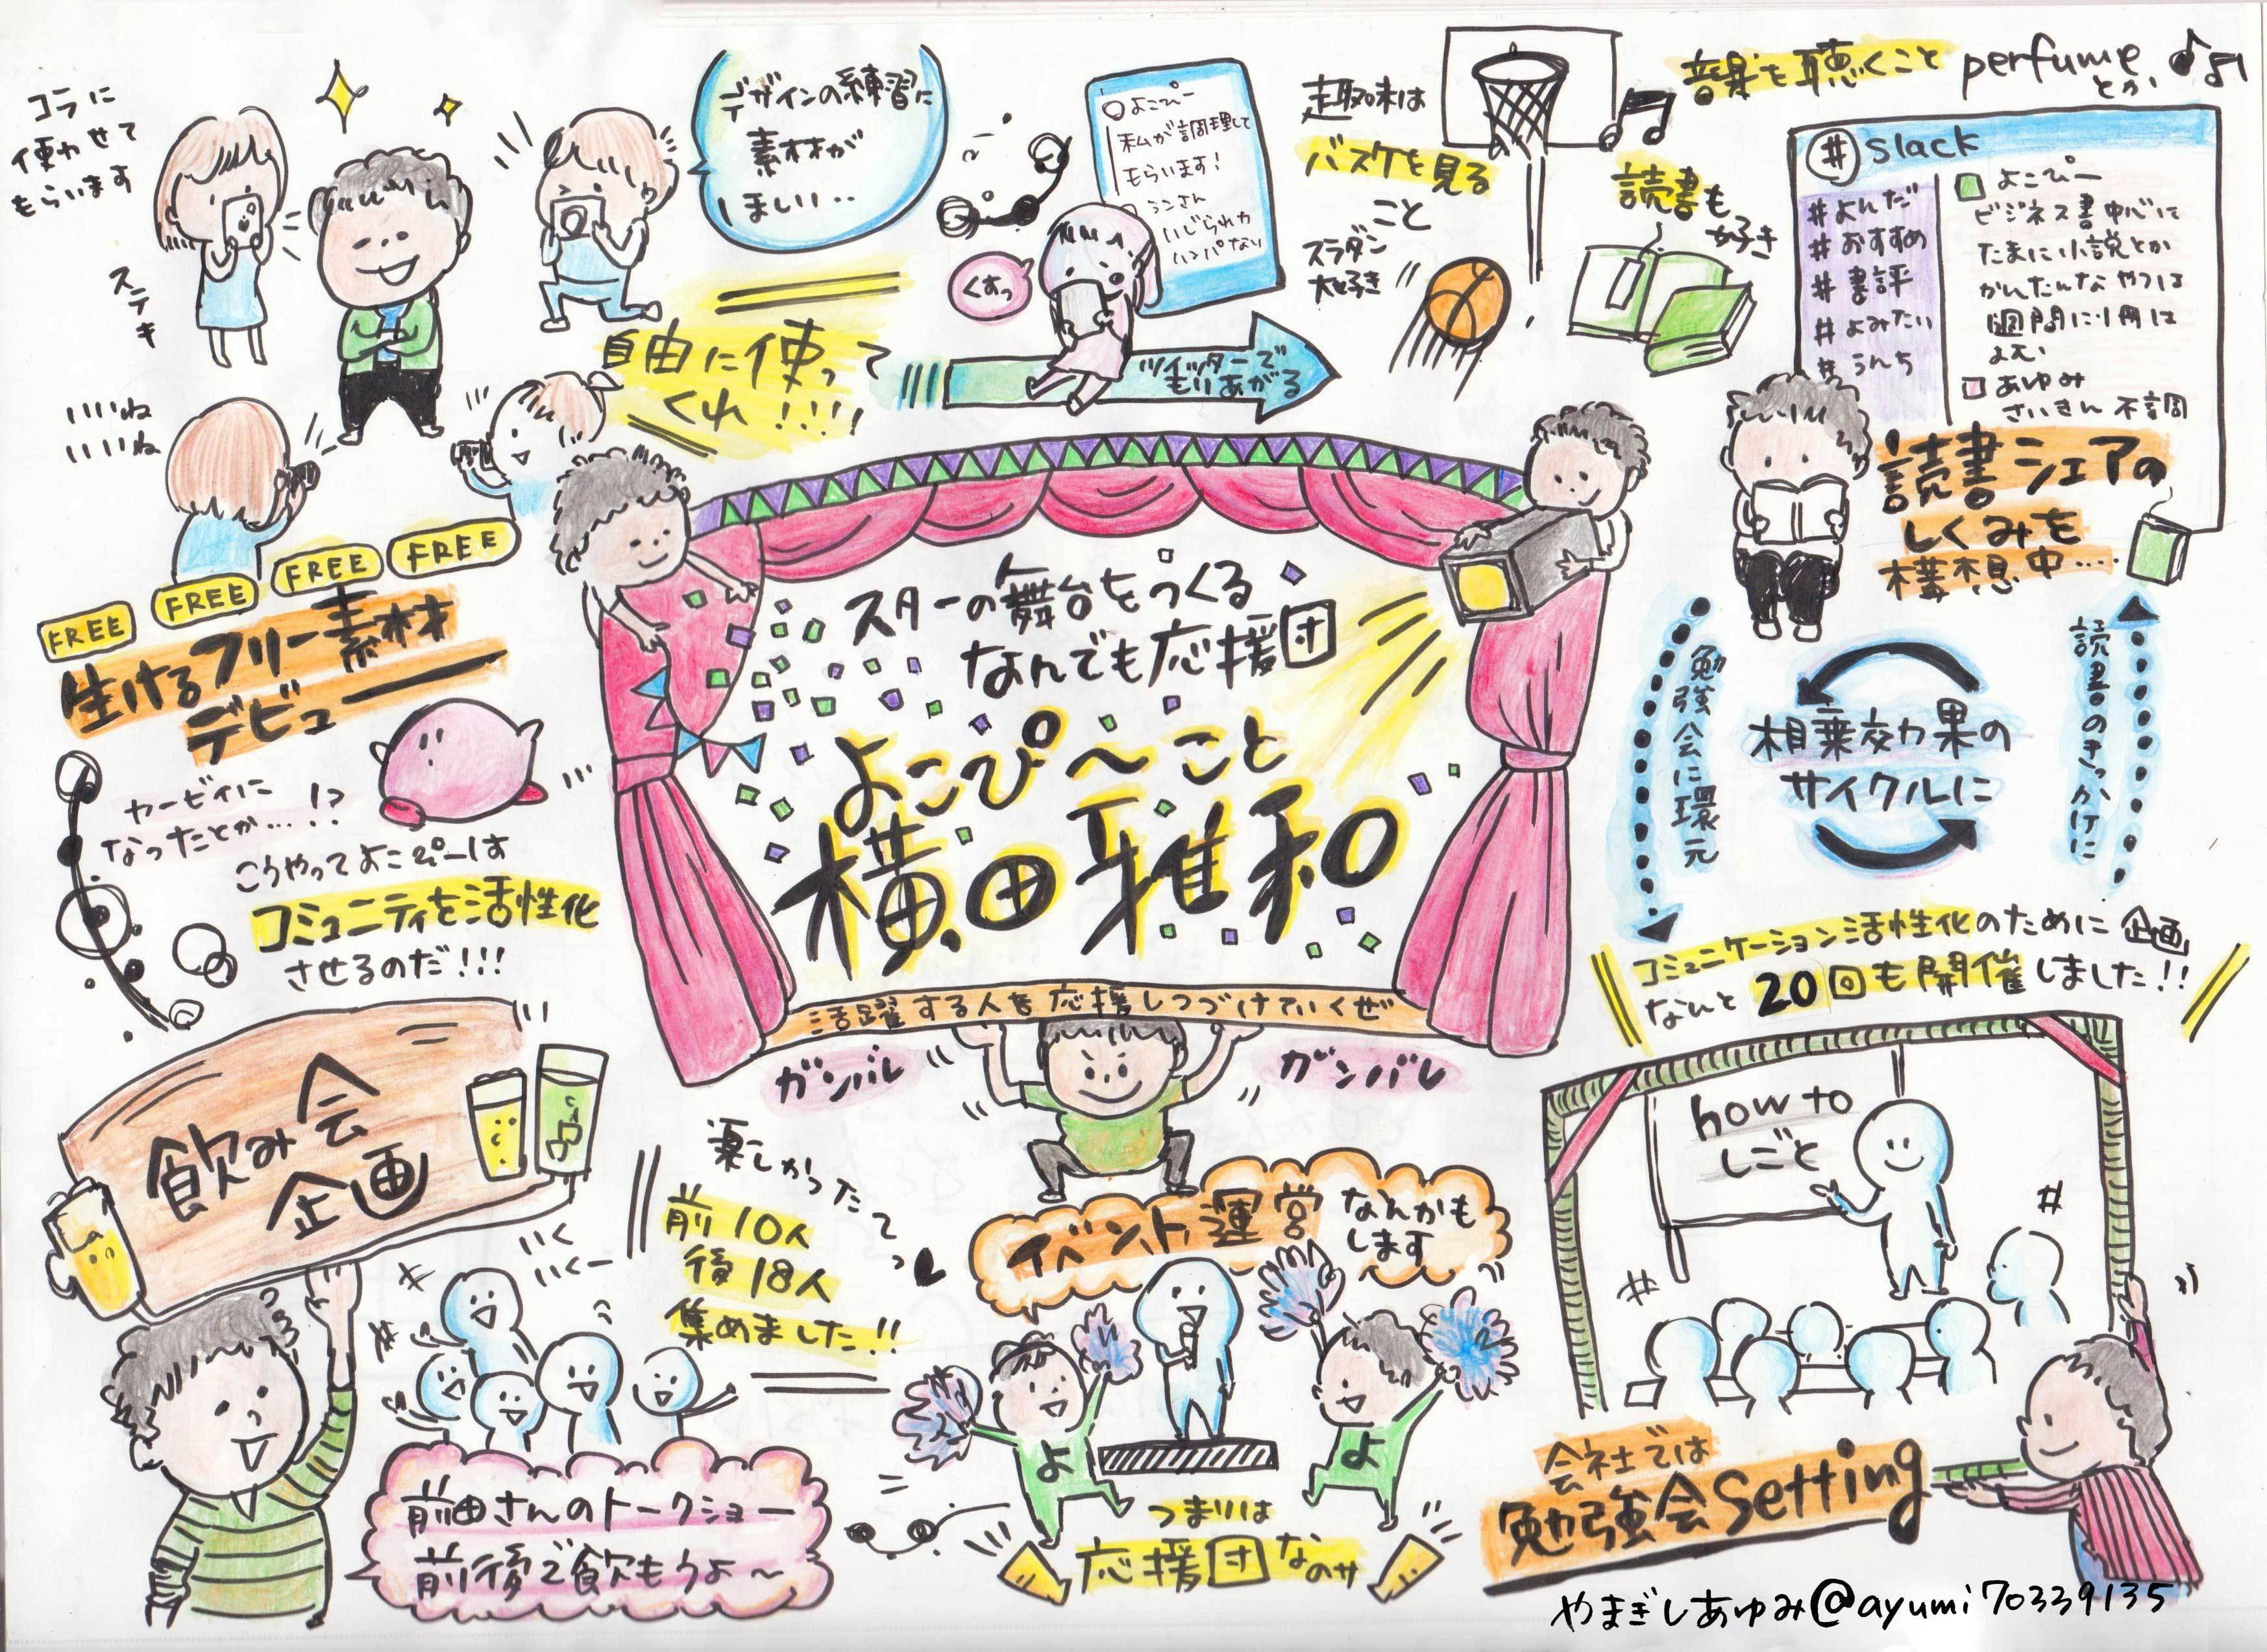 コラに
使わせて
もらいます
ステキ
いいね
いいね
デザインの練習に
素材が
ほしい‥
自由に使って
くれ!!!!
よこぴー
私が調理して
もらいます!
いじられカ
ハンパない
くすっ
ツイッターで
もりあがる
FREE
FREE
FREE
FREE
生けるフリー素材
デビュー
カービィに
なったとか…!?
こうやってよこぴーは
コミュニティを活性化
させるのだ!!!
趣味は
バスケを見る
こと
スラダン
大好き
音楽を聴くこと perfume
とか
読書も
好き
# slack
#よんだ
#おすすめ
#書評
#よみたい
#うんち
よこぴー
ビジネス書中心に
たまに小説とか
かんたんなやつは
1週間に1冊は
よむ
あゆみ
さいきん不調
読書シェアの
しくみを
構想中….
勉強会に環元
相乗効果の
サイクルに
読書のきっかけに
スターの舞台をつくる
なんでも応援団
よこぴ～こと
横田雅和
活躍する人を応援しつづけていくぜ
ガンバレ
ガンバレ
コミュニケーション活性化のために企画
なんと20回も開催しました!!
how to
しごと
会社では
勉強会setting
飲み会
企画
いく
いくー
楽しかったてっ
前10人
後18人
集めました!!
前田さんのトークショー
前後で飲もうよ～
イベント運営なんかも
します
よ
よ
つまりは
応援団なのサ
やまぎしあゆみ@ayumi70339135